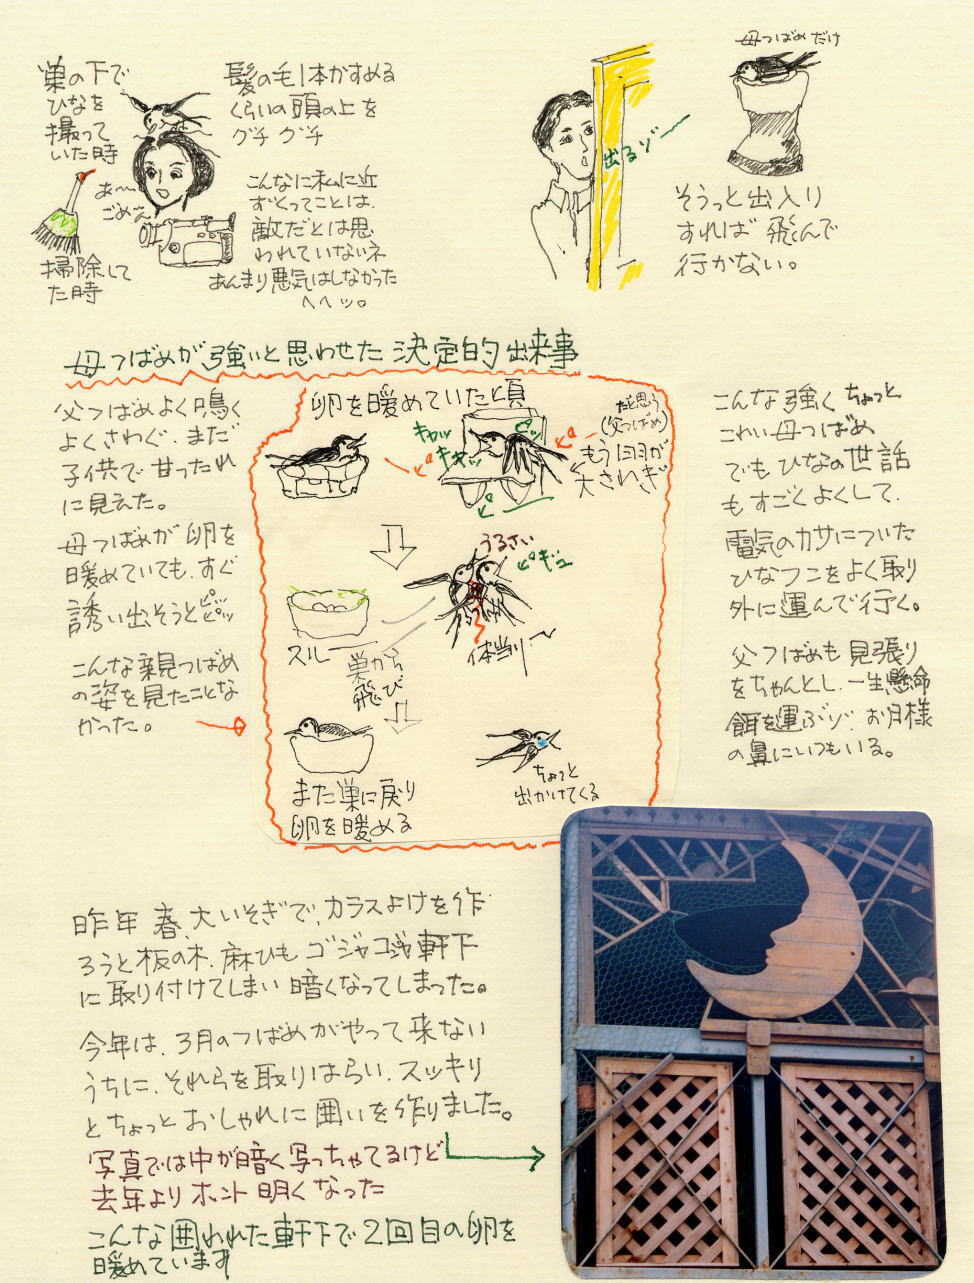 巣の下で
ひなを
撮って
いた時
あ〜
ごめ〜ん
掃除して
た時
髪の毛1本かすめる
くらいの頭の上を
グチ グチ
こんなに私に近
ずくってことは、
敵だとは思
われていないネ
あんまり悪気はしなかった
へへッ。
出るゾ
母つばめだけ
そうっと出入り
すれば 飛んで
行かない。
母つばめが強いと思わせた 決定的出来事
父つばめよく鳴く
よくさわぐ、まだ
子供で甘ったれ
に見えた。
母つばめが卵を
暖めていても、すぐ
誘い出そうとピーッピーッ
こんな親見つばめ
の姿を見たことな
かった。
卵を暖めていた頃
だと思う
(父つばめ)
もう1羽が
大さわぎ
キャッ
キャッ
ピッ
うるさい
ピギュ
体当り
スルー
巣から
飛び
また巣に戻り
卵を暖める
ちょっと
出かけてくる
こんな強く ちょっと
これい母つばめ
でもひなの世話
もすごくよくして、
電気のカサについた
ひなフンをよく取り
外に運んで行く。
父つばめも見張り
をちゃんとし、一生懸命
餌を運ぶゾ お月様
の鼻にいつもいる。
昨年 春、大いそぎで、カラスよけを作
ろうと板の木、麻ひも ゴジャゴジャ軒下
に取り付けてしまい 暗くなってしまった。
今年は、3月のつばめがやって来ない
うちに、それらを取りはらい、スッキリ
とちょっとおしゃれに囲いを作りました。
写真では中が暗く写っちゃてるけど
去年よりホント明くなった
こんな囲われた軒下で2回目の卵を
暖めています